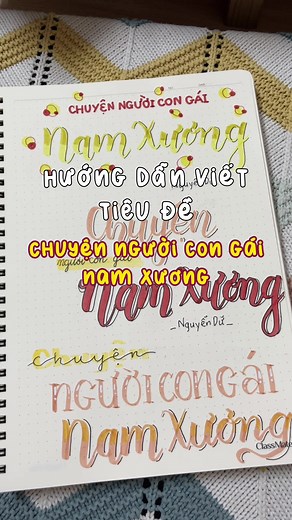 CHUYỆN NGƯỜI CON GÁI
Nam Xương
Hướng Dẫn Viết
Tiêu Đề
Chuyện
Chuyện người con gái
Nam Xương
người con gái
Nam Xương
_Nguyễn Dữ_
Chuyện
NGƯỜI CON GÁI
Nam Xương
ClassMate